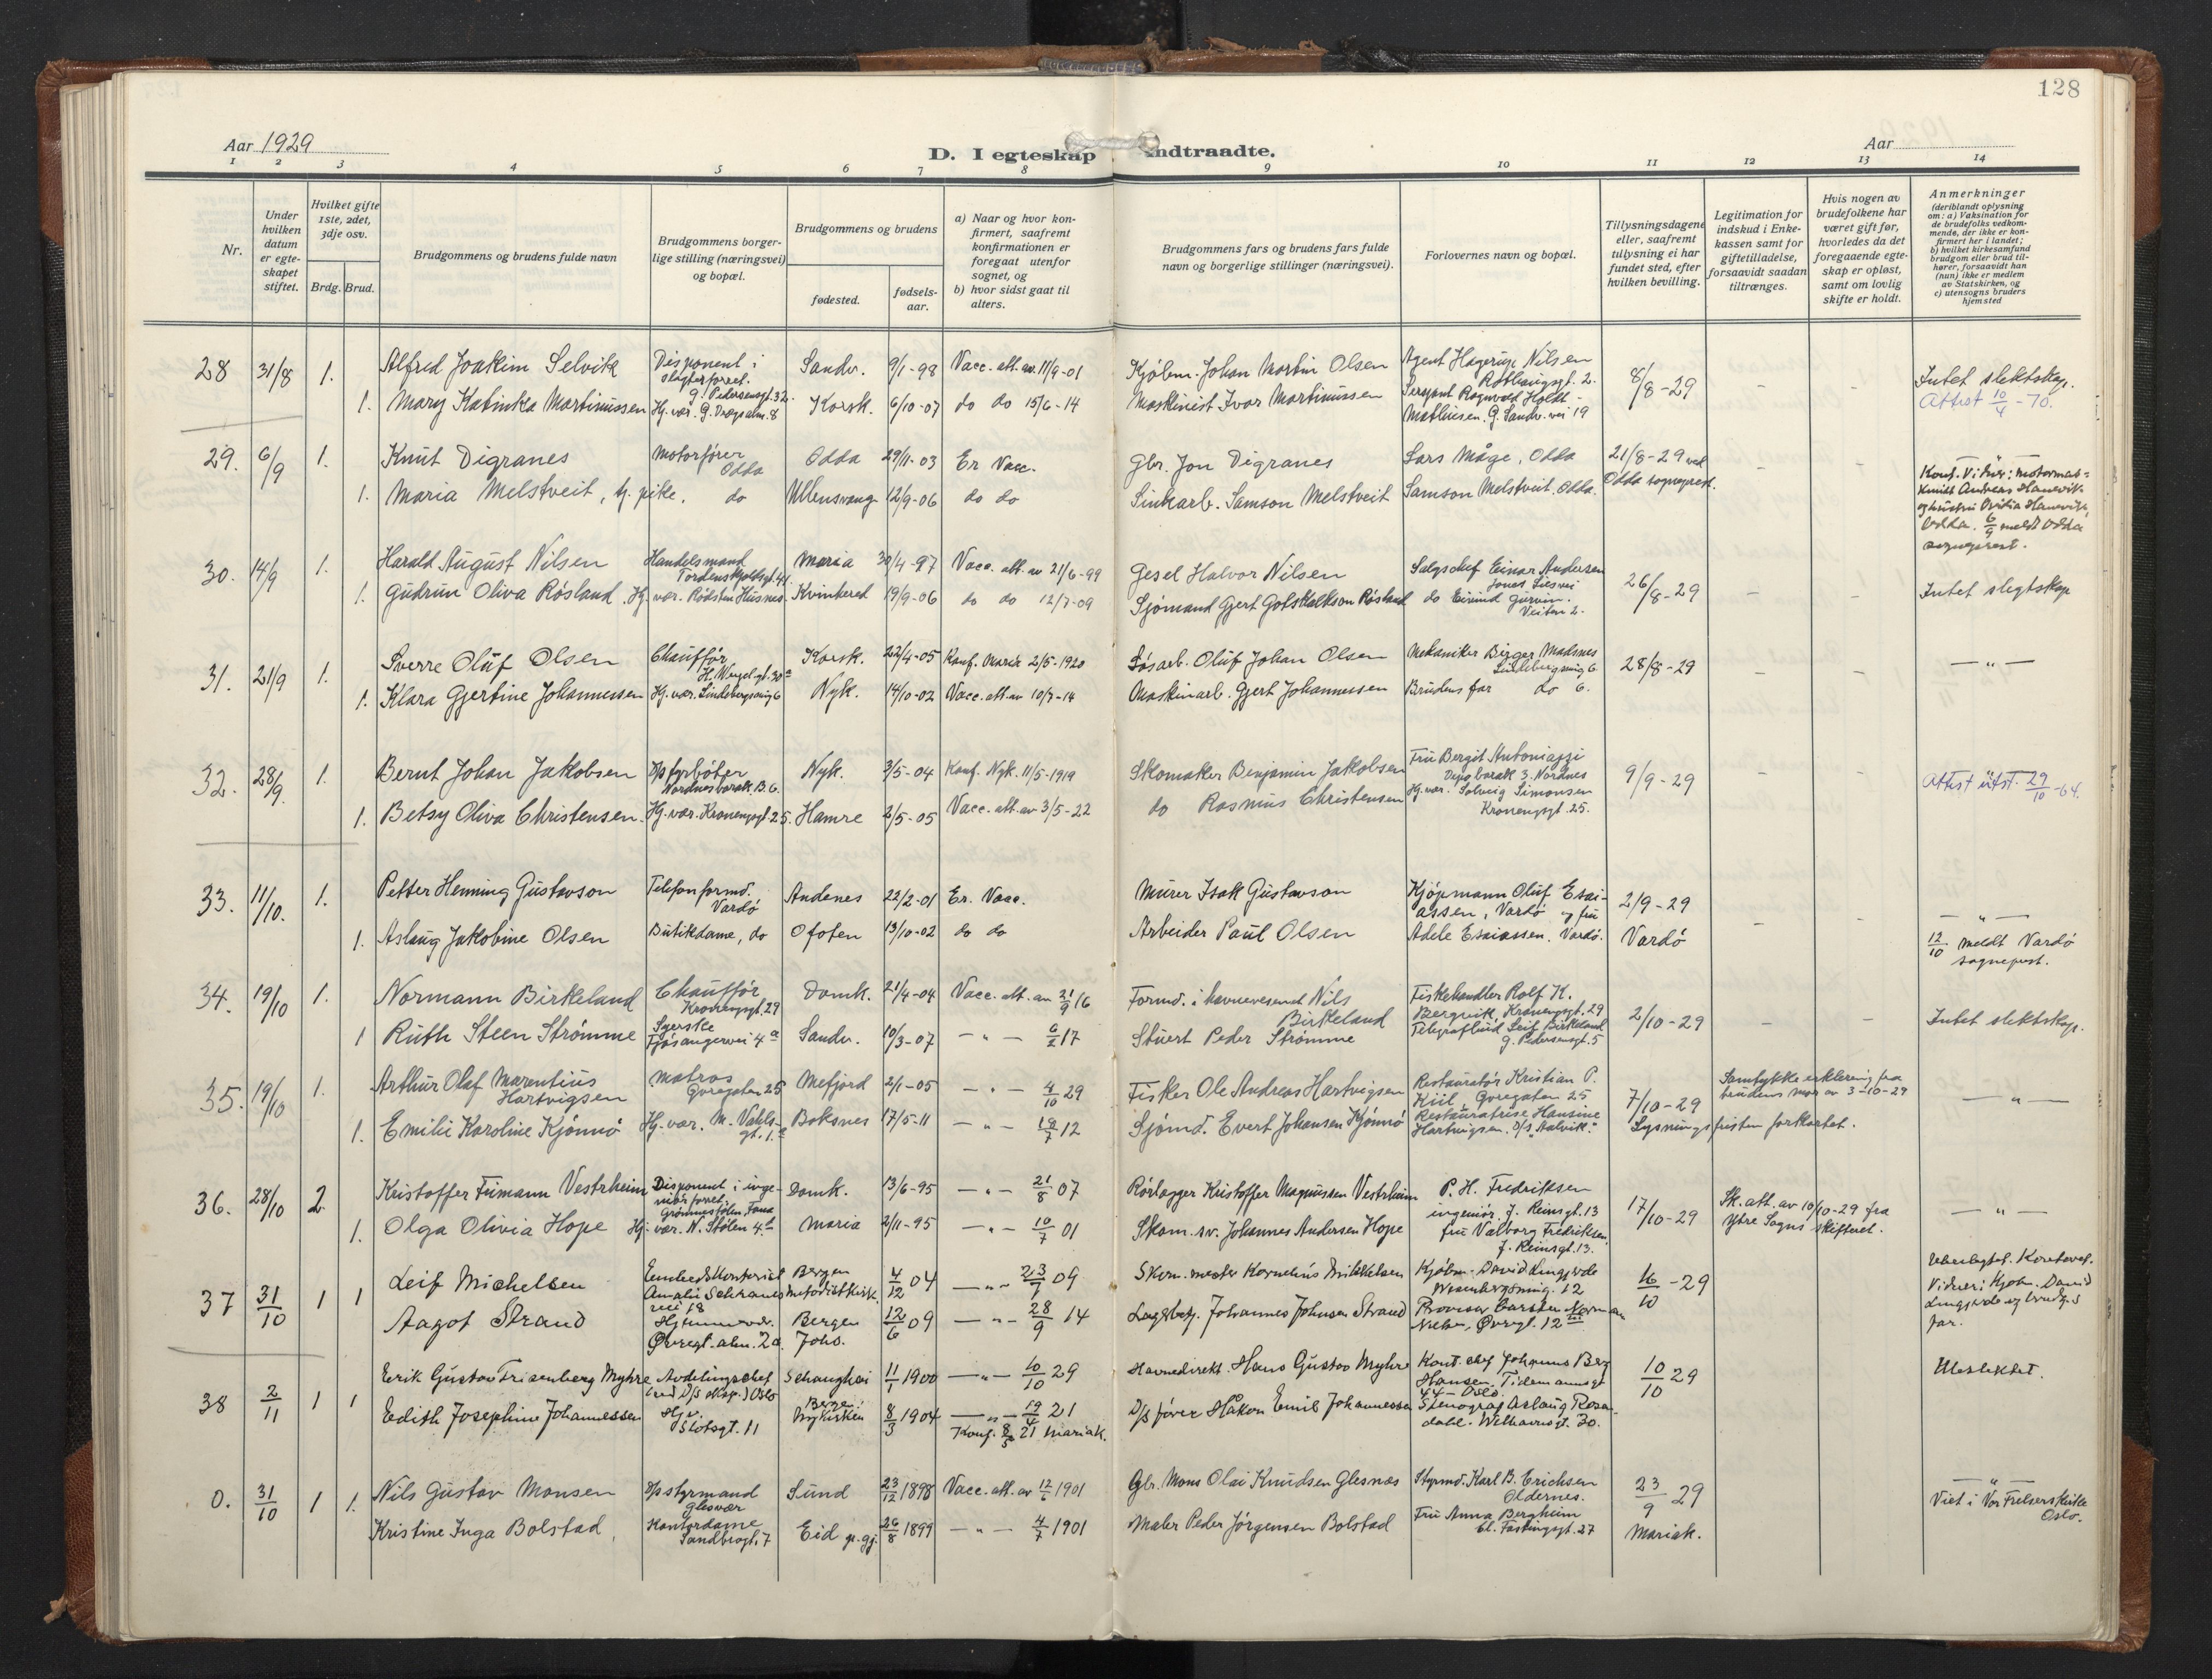 128
Aar 1929
D. I egteskap indtraadte.
Aar
1 2 3 4 5 6 7 8 9 10 11 12 13 14
Nr.
Under hvilken datum er egteskapet stiftet.
Hvilket gifte 1ste, 2det, 3dje osv.
Brdg. Brud.
Brudgommens og brudens fulde navn
Brudgommens borgerlige stilling (næringsvei) og bopæl.
Brudgommens og brudens
fødested.
fødselsaar.
a) Naar og hvor konfirmert, saafremt konfirmationen er foregaat utenfor sognet, og
b) hvor sidst gaat til alters.
Brudgommens fars og brudens fars fulde navn og borgerlige stillinger (næringsvei).
Forlovernes navn og bopæl.
Tillysningsdagene eller, saafremt tillysning ei har fundet sted, efter hvilken bevilling.
Legitimation for indskud i Enkekassen samt for giftetilladelse, forsaavidt saadan tiltrænges.
Hvis nogen av brudefolkene har været gift før, hvorledes da det foregaaende egteskap er opløst, samt om lovlig skifte er holdt.
Anmerkninger
(deriblandt oplysning om: a) Vaksination for de brudefolks vedkommende, der ikke er konfirmert her i landet; b) hvilket kirkesamfund brudgom eller brud tilhører, forsaavidt han (hun) ikke er medlem av Statskirken, og c) utensogns bruders hjemsted
28 31/8 1. Alfred Joakim Selvik Disponent i slagterforret. G. Pedersensgt. 32. Sandv. 9/1-98 Vacc. att. av 11/9-01 Kjøbm. Johan Martin Olsen Agent Hagerup Nilsen Rothaugsgt. 2. 8/8-29 - - Intet slektskap.
1. Mary Katinka Martinussen Hj. vær. 8 Korsk. 6/10-07 do do 15/6-14 Maskinist Ivar Martinussen Sersjant Ragnvald Holdt-Mathiesen. G. Sandv. vei 19 Attest 10/4-70.
29. 6/9 1. Knut Digranes Motorfører Odda Odda 29/11-03 Er Vacc. Gbr. Jon Digranes Lars Måge, Odda 21/8-29 ved Odda sogneprest. - -
1. Maria Melstveit, hj. pike. do Ullensvang 12/9-06 do do Sinkarb. Samson Melstveit Samson Melstveit. Odda.
Andreas Hanevik Hanevik, Odda. 6/9 meldt Odda sogneprest.
30. 14/9 1. Harald August Nilsen Handelsmand Tordenskjoldsgt. 41. Maria 30/4-97 Vacc. att. av 21/6-99 Gesel Halvor Nilsen Salgschef Einar Andersen Jonas Liesvei 26/8-29 - - Intet slegtskap
1. Gudrun Oliva Røsland. Hj. vær. Rødsten Husnes. Kvinhered 19/9-06 do do 12/7-09 Sjømand Gjert Gotskalkson Røsland do Eivind Gjervin. Veiten 2.
31. 21/9 1. Sverre Oluf Olsen Chauffør H. Wergel. gt. 30a Korsk. 22/4-05 Konf. Maria 2/5-1920 Løsarb. Oluf Johan Olsen Mekaniker Birger Madsnes Lindebergsmug 6 28/8-29 - - — " —
1. Klara Gjertine Johannessen Hj. vær. Lindebergsmug 6 Nyk. 14/10-02 Vacc. att. av 10/7-14 Maskinarb. Gjert Johannessen Brudens far do 6.
32. 28/9. 1. Bernt Johan Jakobsen D/s fyrbøter Nordnesbarak. B. 6. Nyk. 3/5-04 Konf. Nyk. 11/5-1919 Skomaker Benjamin Jakobsen Fru Bergit Antoniazzi barak 3. Nordnes 9/9-29 - - Attest utst. 29/10-64.
1. Betsy Oliva Christensen. Hj. vær. Kronengsgt. 25. Hamre 2/5-05 Vacc. att. av 3/5-22 do Rasmus Christensen Hj. vær. Solveig Simonsen Kronengsgt. 25.
33. 11/10. 1. Petter Henning Gustavson Telefonformd. Vardø Andenes 22/2-01 Er. Vacc. Murer Isak Gustavson Kjøpmann Oluf Esaiassen, Vardø og fru 2/9-29 - - — " —
1. Aslaug Jakobine Olsen Butikdame, do Ofoten 13/10-02 do do Arbeider Paul Olsen Adele Esaiassen. Vardø. Vardø 12/10 meldt Vardø sogneprest.
34. 19/10 1. Normann Birkeland Chauffør Kronengsgt. 29 Domk. 21/4-04 Vacc. att. av 21/9 16 Formd. i havnevesenet Nils Birkeland Fiskehandler Rolf K. Bergvik, Kronengsgt. 29 2/10-29 - - Intet slektskap.
1 Ruth Steen Strømme Syerske Fjøsangervei 4a Sandv. 10/3-07 — " — 6/2 17 Stuert Peder Strømme Telegrafbud Leif Birkeland G. Pedersensgt. 5
35. 19/10 1. Arthur Olaf Marentius Hartvigsen Matros Goregaten 25 Mefjord 2/1-05 — " — 4/10 29 Fisker Ole Andreas Hartvigsen Restauratør Kristian P. Kiil, Goregaten 25 7/10-29 Samtykkeerklering fra brudens mor av 3-10-29 — " —
1. Emilie Karoline Kjønnø Hj. vær. M. Vahlsgt. 1. Boksnes 17/5-11 — " — 12 Sjømd. Evert Johansen Kjønnø Restauratrise Hansine Hartvigsen. D/S "Aalvik". Lysningsfristen forkortet.
36. 28/10 2. Kristoffer Vestrheim Disponent i ingeniørforret. Grønnestølen, Fana Domk. 13/6-95 — " — 21/8 07 Rørlægger Kristoffer Magnussen Vestrheim P. H. Fredriksen ingeniør, J. Reinsgt. 13 17/10-29 Sk. att. av 10/10-29 fra Ytre Sogns skifteret. — " —
1. Olga Olivia Hope Hj. vær. N. Stølen 4. Maria 2/11-95 — " — 10/7 01 Skom. sv. Johannes Andersen Hope fru Valborg Fredriksen J. Reinsgt. 13.
37 31/10 1 1 Leif Michelsen Amalie Skramsvei 18 Bergen Metodistkirk. 4/12 04 — " — 23/7 09 Skom. mester Kornelius Mikkelsen Kjøbm. David Lungjerde 12 16/10-29 Vidner: Kjøbm. David Lungjerde og brudens far.
Aagot Strand Hjemmevær. Øvregt. alm. 2a Bergen Johs. 12/6 09 — " — 28/9 14 Johannes Johnsen Strand Provisor Carsten Norman Nielsen, Øvregt. 12
38 2/11 1 1 Erik Gustav Frisenberg Myhre Avdelingschef (ved D/S eksp.) Oslo Schanghai 11/1 1900 — " — 10/10 29 Havnedirekt. Hans Gustav Myhre Kont. chef Johannes Berg Hansen. Tidemannsgt 44 - Oslo. 10/10 29 Ubeslektet.
Edith Josephine Johannessen Hjv. Slotsgt. 11 Bergen Nykirken 8/3 1904 — " — 19/4 21 D/s fører Håkon Emil Johannessen Stenograf Aslaug Rosendahl. Welhavnsgt. 30.
Konf. 8/5 21 Mariak.
0. 31/10 1 1. Nils Gustav Monsen D/s styrmand Glesvær Sund 23/12 1898 Vacc. att. av 12/6 1901 Gbr. Mons Olai Knudsen Glesnæs Styrmd. Karl B. Erichsen Oldernes. 23/9 29 — " —
Kristine Inga Bolstad Kontordame Sandbrogt. 7 Eid p. gj. 26/8 1899 — " — 4/7 1901 Maler Peder Jørgensen Bolstad Fru Anna Bergheim Cl. Fastingsgt. 27 Mariak. Viet i Vor Frelserskirke Oslo.